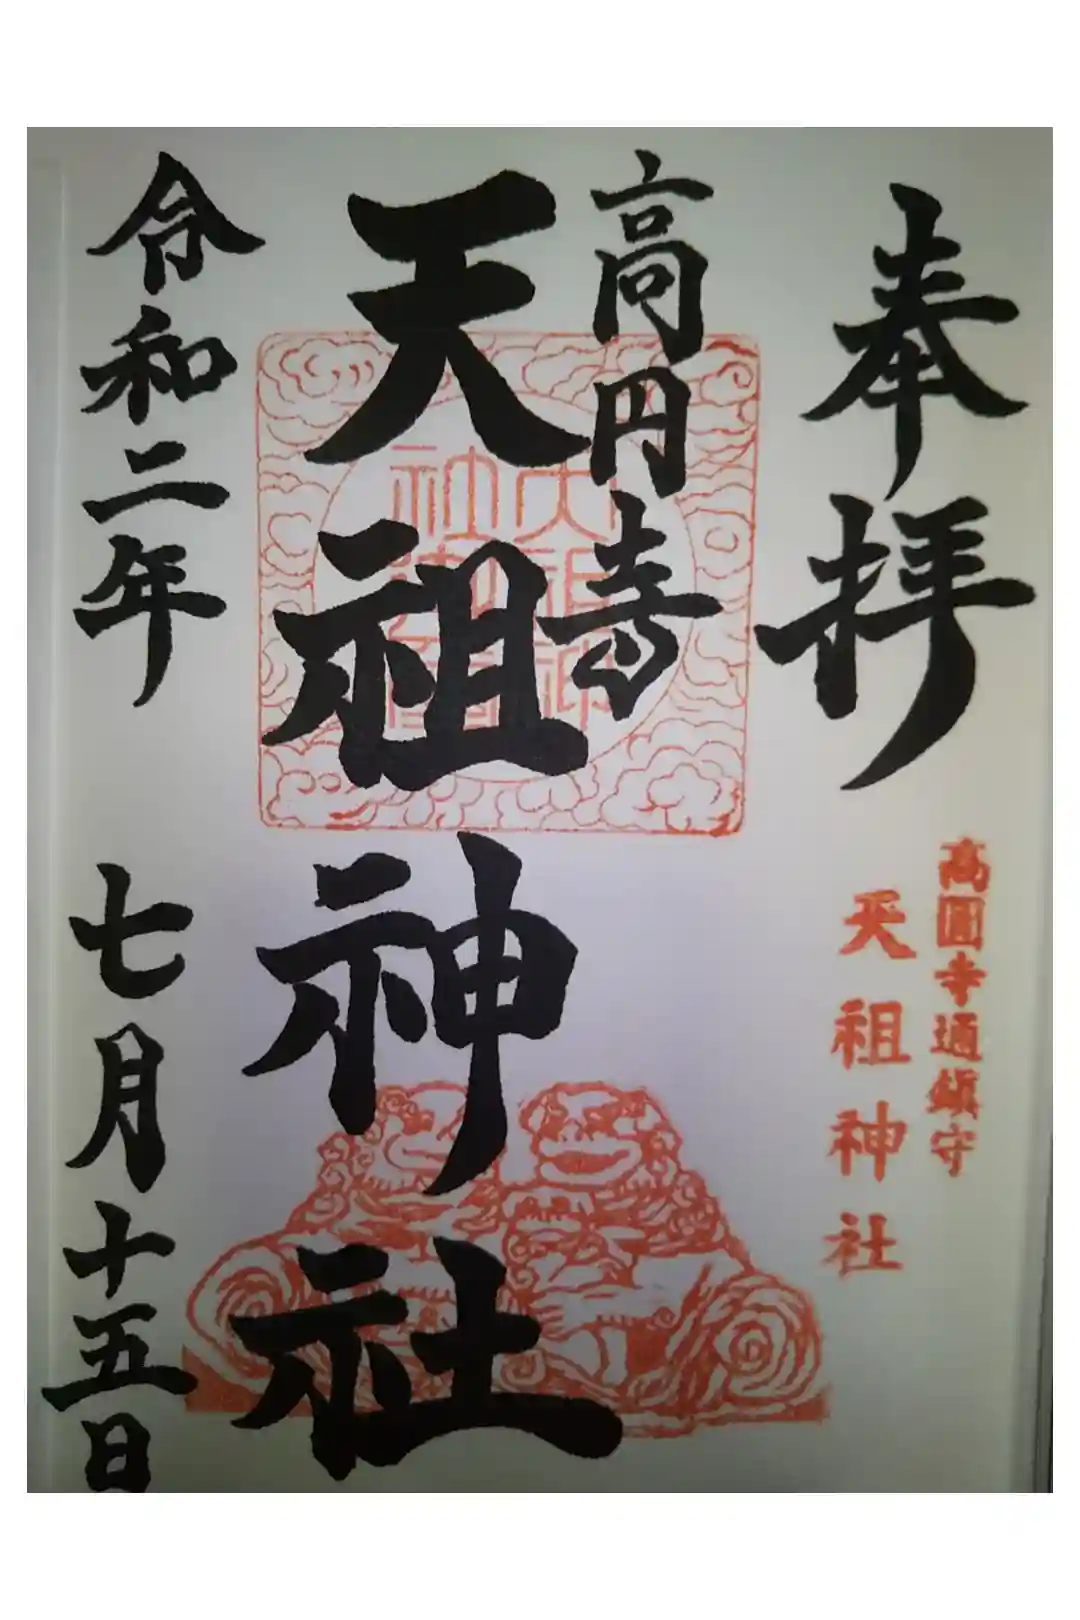 奉拝
高圓寺通鎮守
天祖神社
高円寺
天祖神社
令和二年
七月十五日